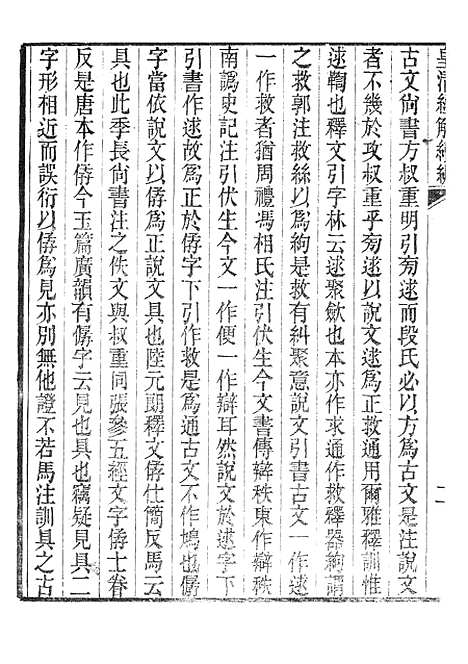 皇清經解續編
古文尙書方叔重明引旁逑而段氏必以方爲古文是注說文
者不幾於攻叔重乎旁逑以說文逑爲正救通用爾雅釋訓惟
逑鞫也釋文引字林云逑聚斂也本亦作求通作救釋器絇謂
之救郭注救絲以爲絇是救有糾聚意說文引書古文一作逑
一作救者猶周禮馮相氏注引伏生今文書傳辯秩東作辯秩
南譌史記注引伏生今文一作便一作辯耳然說文於逑字下
引書作逑故爲正於孱字下引作救是爲通古文不作鳩也孱
字當依說文以孱爲正說文具也陸元朗釋文孱仕簡反馬云
具也此季長尙書注之佚文與叔重同張參五經文字孱士眷
反是唐本作孱今玉篇廣韻有孱字云見也具也竊疑見具二
字形相近而誤衍以孱爲見亦別無他證不若馬注訓具之古